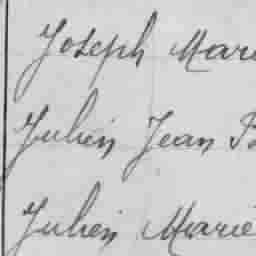 Joseph Mari
Julien Jean B
Julien Marie